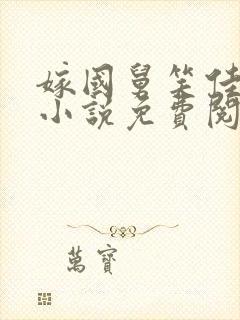 嫁國舅笑佳
小說免費閱
萬寶